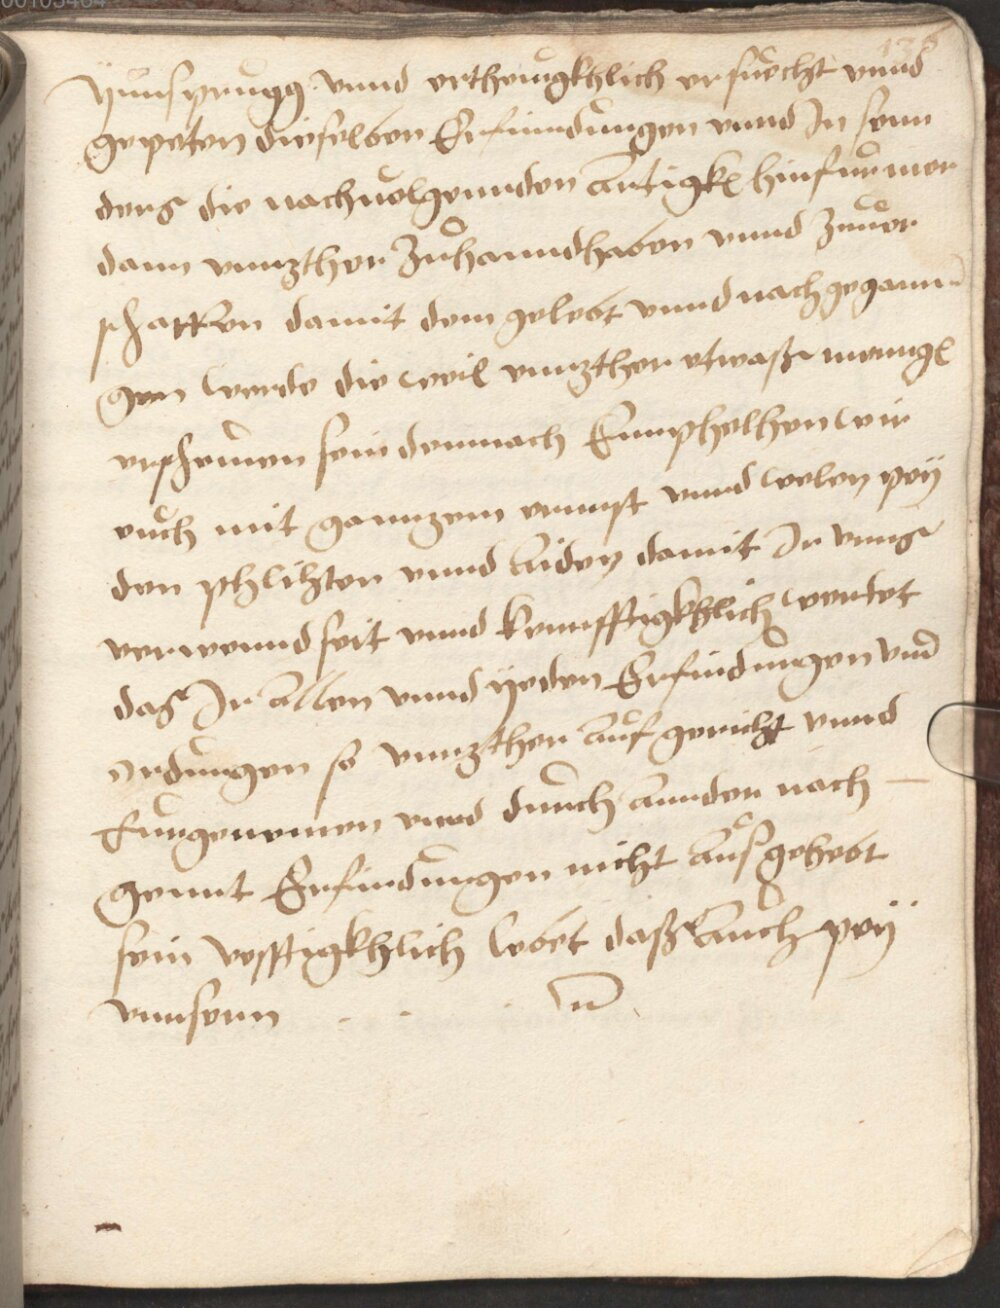 Ynnsprugg vnnd vrthenigkhlich ersuecht vnnd
gepeten dieselben Erfinndungen vnnd In sonn
ders die nachuolgennden Artigkl hinfur mer
dann vnnzther Zuhanndhaben vnnd Zuuer
schaffen damit dem gelebt vnnd nachgegann
gen werde die weil vnnzther etwaß menngl
erschinen sein demnach Emmphelhen wir
euch mit gannzem ernnst vnnd welen pey
den phlichten vnnd Aiden damit Ir vnns
verwonnd seit vnnd kunfftigkhlich werdet
das Ir Allen vnnd yeden Erfindungen vnd
Ordnungen so vnnzther Aufgericht vnnd
furgenomen vnnd durch annder nach
gennt Erfindungen nicht Aufgehebt
sein vesstigkhlich lebet daß Auch pey
vnnsern